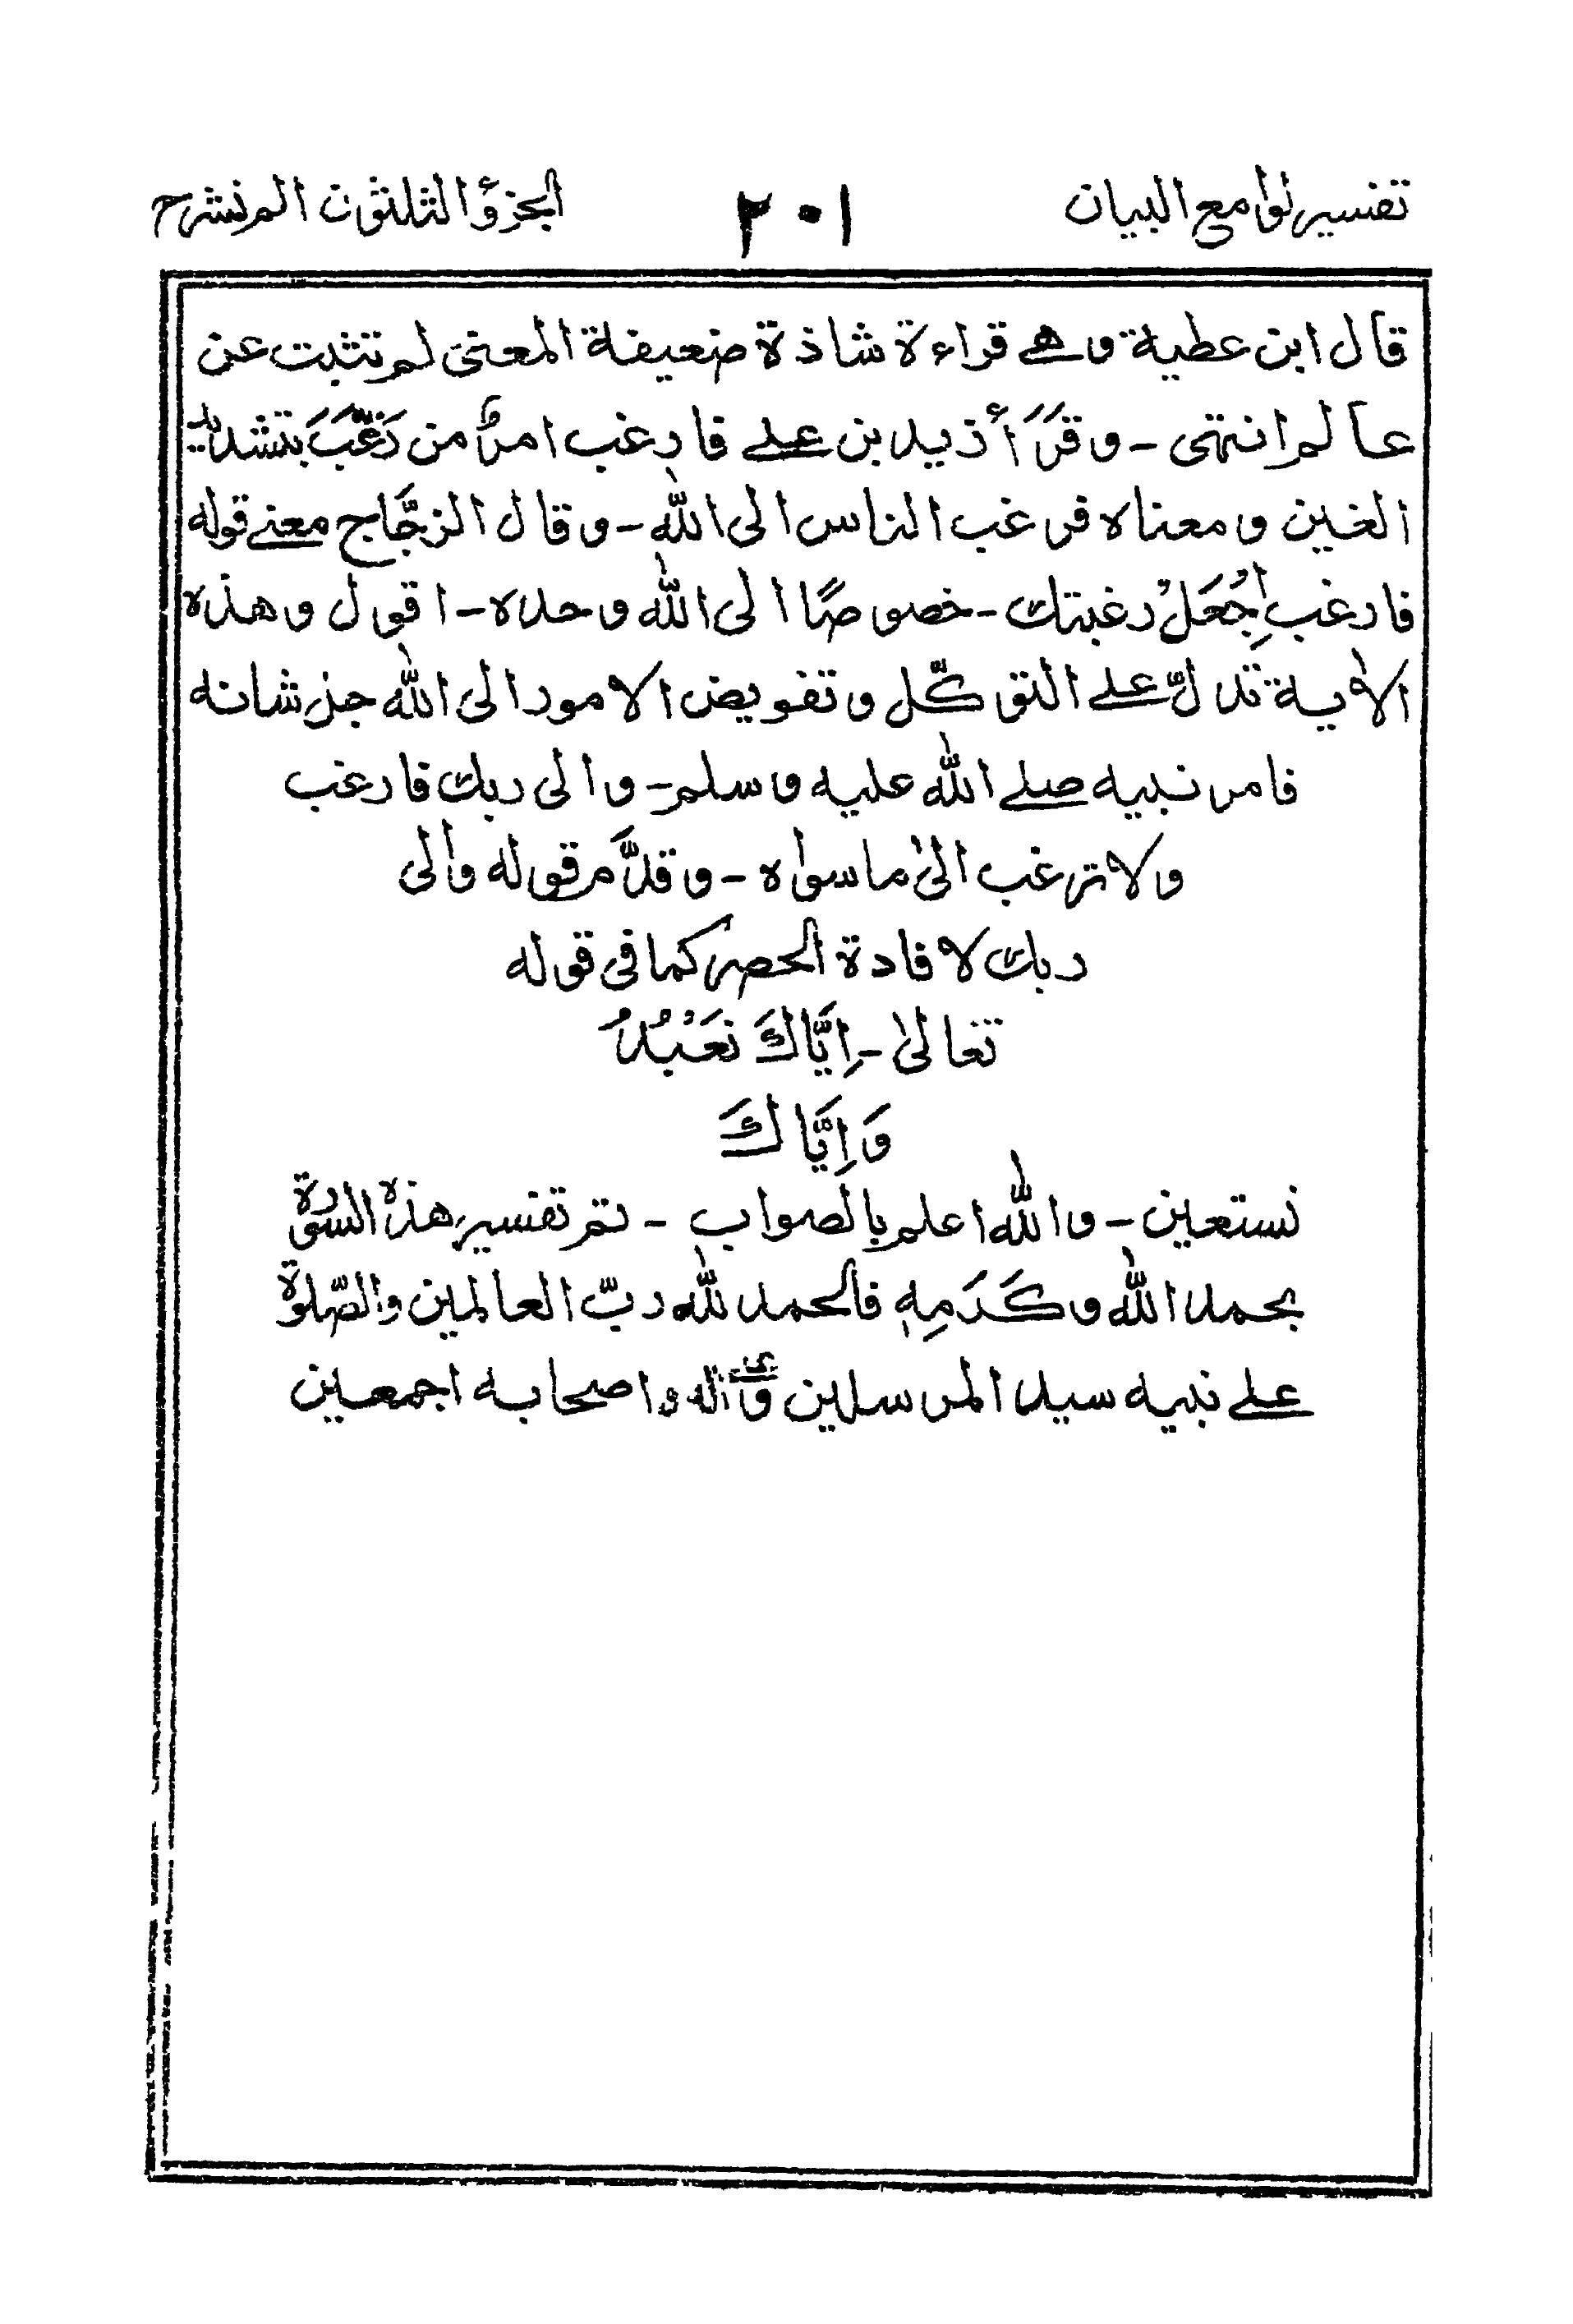 تفسير لوامع البيان
٢٠١
الجزؤ الثلثون الم نشرح
قال ابن عطية وهے قراءة شاذة ضعيفة المعنى لم تثبت عن
عالم انتهى - وقَرَأَ زيد بن علے فارغب امرٌ من رَغَّبَ بتشديد
الغين ومعناه فرغب الناس الى الله - وقال الزجَّاج معنے قوله
فارغب اِجْعَلْ رغبتك - خصوصًا الى الله وحده - اقول وهذه
الآية تدلّ علے التوكّل وتفويض الامور الى الله جل شانه
فامر نبيه صلے الله عليه وسلم - والى ربك فارغب
ولا ترغب الىٰ ما سواه - وقدَّم قوله والى
ربك لافادة الحصر كما فى قوله
تعالىٰ - اِيَّاكَ نَعْبُدُ
وَاِيَّاكَ
نستعين - والله اعلم بالصواب - تم تفسير هذه السورة
بحمد الله وكَرَمِهٖ فالحمد لله ربّ العالمين والصّلوة
علے نبيه سيد المرسلين وعلى آله واصحابه اجمعين